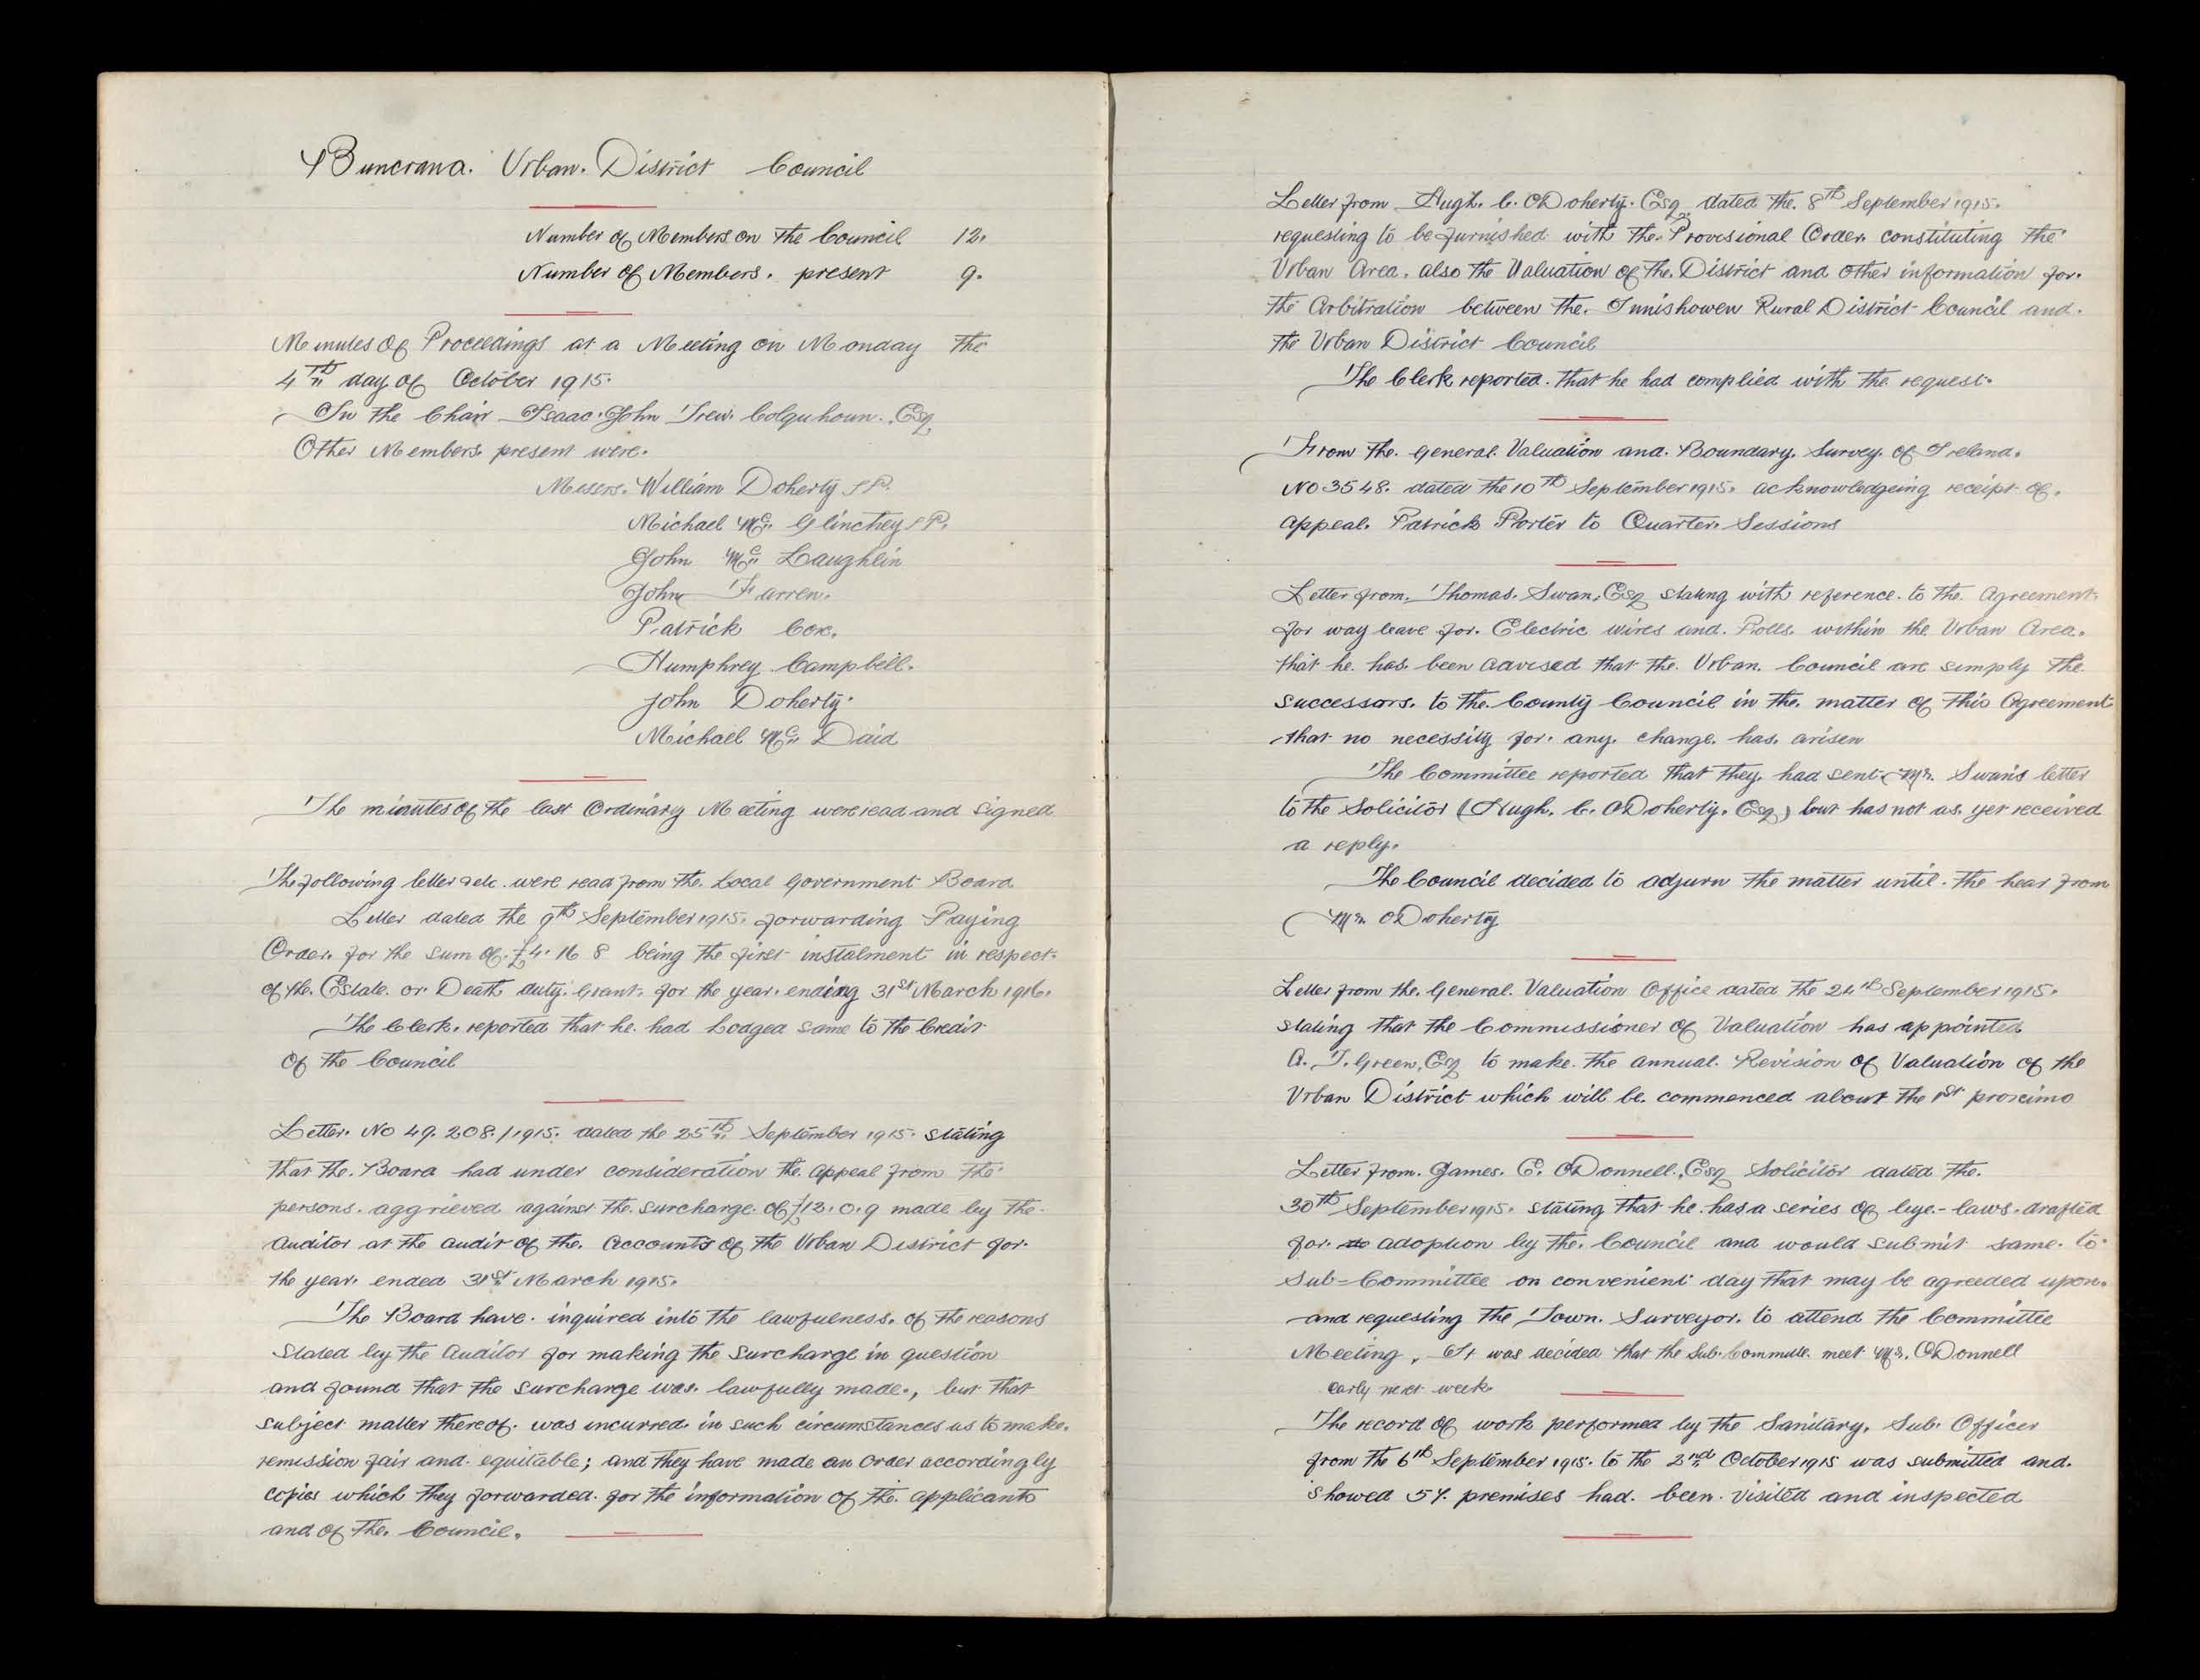 Buncrana. Urban. District Council
Number of Members on the Council 12.
Number of Members. present 9.
Minutes of Proceedings at a Meeting on Monday the
4th day of October 1915.
In the Chair Isaac John Trew Colquhoun. Esq
Other Members present were.
Messrs. William Doherty J P.
Michael Mc Glinchey J P.
John Mc Laughlin
John Farren.
Patrick Cox.
Humphrey Campbell.
John Doherty.
Michael Mc Daid
The minutes of the last Ordinary Meeting were read and signed
The following letters etc. were read from the Local Government Board
Letter dated the 9th September 1915. forwarding Paying
Order. for the sum of £4. 16 8 being the first instalment in respect
of the Estate or Death duty Grant. for the year ending 31st March 1916.
The Clerk. reported that he had Lodged same to the Credit
of the Council
Letter. No 49. 208./1915. dated the 25th September 1915. stating
that the Board had under consideration the appeal from the
persons. aggrieved against the surcharge of £12. 0. 9 made by the
auditor at the audit of the Accounts of the Urban District for
the year. ended 31st March 1915.
The Board have inquired into the lawfulness. of the reasons
stated by the Auditor for making the surcharge in question
and found that the surcharge was. lawfully made., but that
subject matter thereof. was incurred. in such circumstances as to make.
remission fair and equitable; and they have made an order accordingly
copies which they forwarded. for the information of the applicants
and of the. Council.
Letter from Hugh. C. O'Doherty. Esq. dated the. 8th September 1915.
requesting to be furnished with the Provisional Order constituting the
Urban Area. also the Valuation of the. District and other information for.
the Arbitration between the. Innishowen Rural District Council and.
the Urban District Council
The Clerk reported. that he had complied with the request.
From the. General Valuation and. Boundary. Survey. of Ireland.
No 3548. dated the 10th September 1915. acknowledgeing receipt of.
appeal. Patrick Porter to Quarter. Sessions
Letter from. Thomas. Swan, Esq stating with reference. to the Agreement
for way leave for. Electric wires and. Polls. within the Urban Area.
that he has been advised that the Urban. Council are simply the
successors. to the County Council in the. matter of this Agreement
that no necessity for any change. has. arisen
The Committee reported that they. had sent Mr. Swan's letter
to the Solicitor (Hugh. C. O'Doherty. Esq) but has not as yet received
a reply.
The Council decided to adjurn the matter until the hear from
Mr. O'Doherty
Letter from the. General. Valuation Office dated the 24th September 1915.
stating that the Commissioner of Valuation has appointed
A. T. Green, Esq to make. the annual. Revision of Valuation of the
Urban District which will be. commenced about the 1st proximo
Letter from. James. E. O'Donnell., Esq Solicitor dated the.
30th September 1915. stating that he has a series of bye-laws. drafted
for adoption by the. Council and would submit same. to
Sub=Committee on convenient day that may be agreeded upon.
and requesting the Town. Surveyor. to attend the Committee
Meeting, It was decided that the Sub. Committe meet Mr. O'Donnell
early next week.
The record of work performed by the Sanitary. Sub. Officer
from the 6th September 1915. to the 2nd October 1915 was submitted and.
showed 54. premises had. been visited and inspected